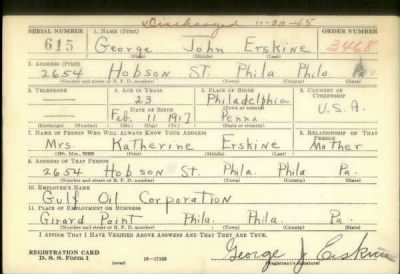 Discharged 11-30-45
SERIAL NUMBER 1. NAME (Print) ORDER NUMBER
615 George John Erskine 3468
(First) (Middle) (Last)
2. ADDRESS (Print)
2654 Hobson St. Phila Phila Pa
(Number and street or R. F. D. number) (Town) (County) (State)
3. TELEPHONE 4. AGE IN YEARS 5. PLACE OF BIRTH 6. COUNTRY OF CITIZENSHIP
23 Philadelphia
DATE OF BIRTH (Town or county)
Feb. 11 1917 Penna U.S.A.
(Exchange) (Number) (Mo.) (Day) (Yr.) (State or country)
7. NAME OF PERSON WHO WILL ALWAYS KNOW YOUR ADDRESS 8. RELATIONSHIP OF THAT PERSON
Mrs. Katherine Erskine Mother
(Mr., Mrs., Miss) (First) (Middle) (Last)
9. ADDRESS OF THAT PERSON
2654 Hobson St. Phila. Phila Pa.
(Number and street or R. F. D. number) (Town) (County) (State)
10. EMPLOYER'S NAME
Gulf Oil Corporation
11. PLACE OF EMPLOYMENT OR BUSINESS
Girard Point Phila. Phila. Pa.
(Number and street or R. F. D. number) (Town) (County) (State)
I AFFIRM THAT I HAVE VERIFIED ABOVE ANSWERS AND THAT THEY ARE TRUE.
REGISTRATION CARD George J Erskine
D. S. S. Form 1 (over) 16-17105 (Registrant's signature)